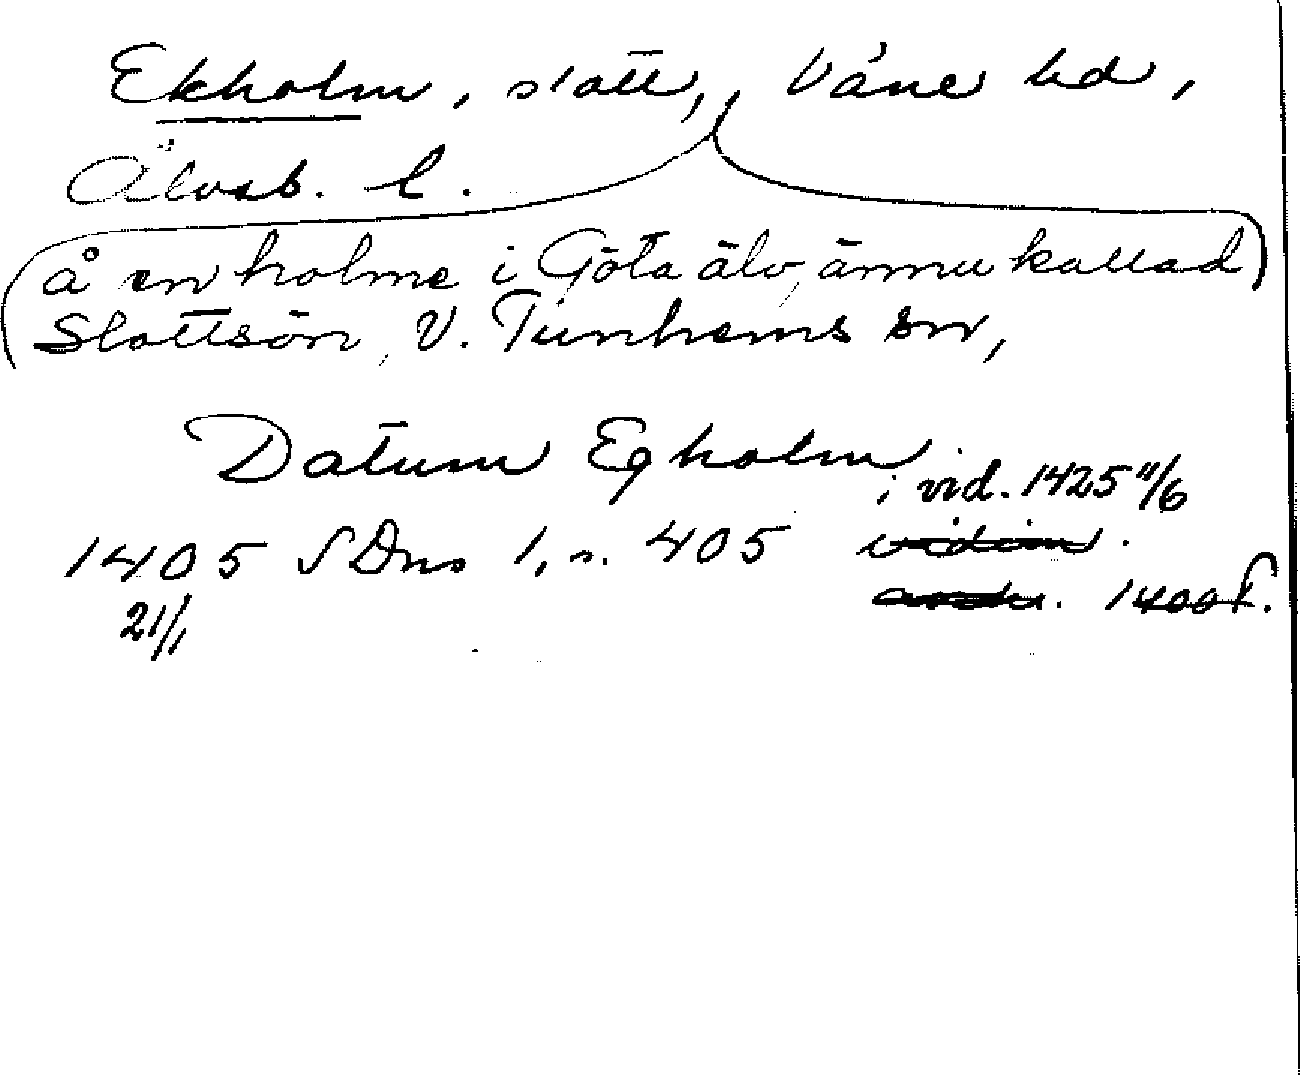 Ekholm, slott, Väne hd,
Älvsb. l.
å en holme i Göta älv, ännu kallad
Slottsön, V. Tunhems sn,
Datum Egholm
; vid. 1425 11/6
1405 SDns 1, s. 405 vidim.
1400 t.
21/1